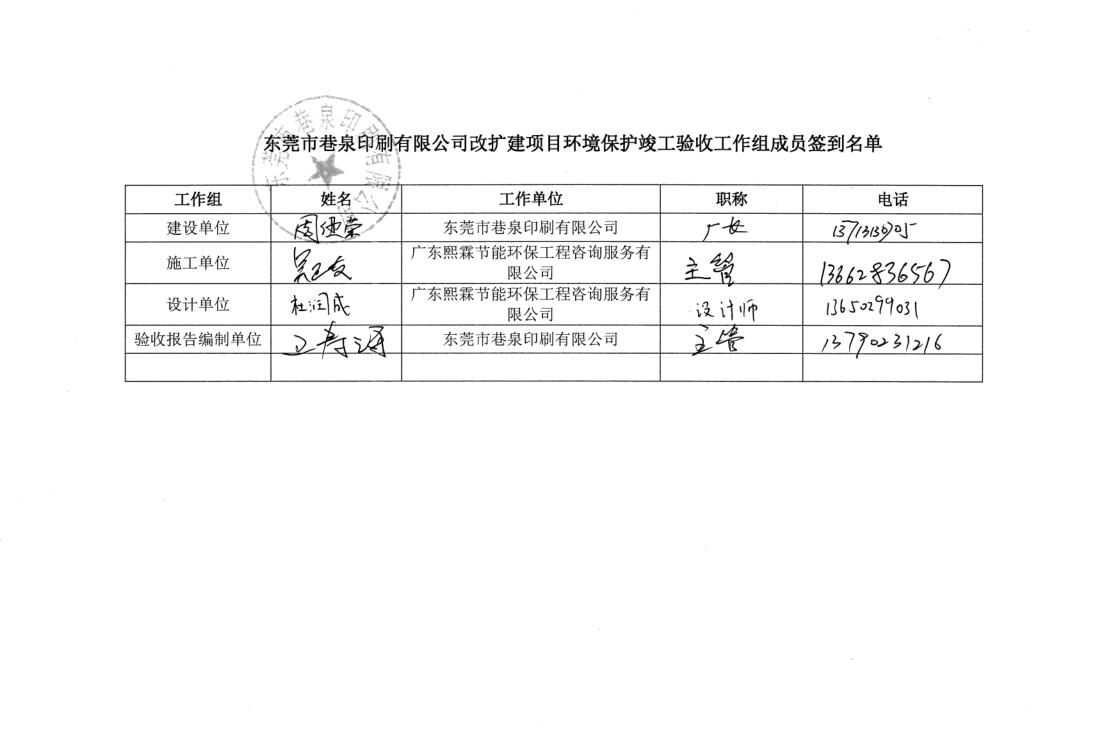 东莞市巷泉印刷有限公司
东莞市巷泉印刷有限公司改扩建项目环境保护竣工验收工作组成员签到名单
工作组 姓名 工作单位 职称 电话
建设单位 东莞市巷泉印刷有限公司
施工单位 广东熙霖节能环保工程咨询服务有限公司 主管 13662836567
设计单位 杜润成 广东熙霖节能环保工程咨询服务有限公司 设计师 13650299031
验收报告编制单位 东莞市巷泉印刷有限公司 主管 13790231216